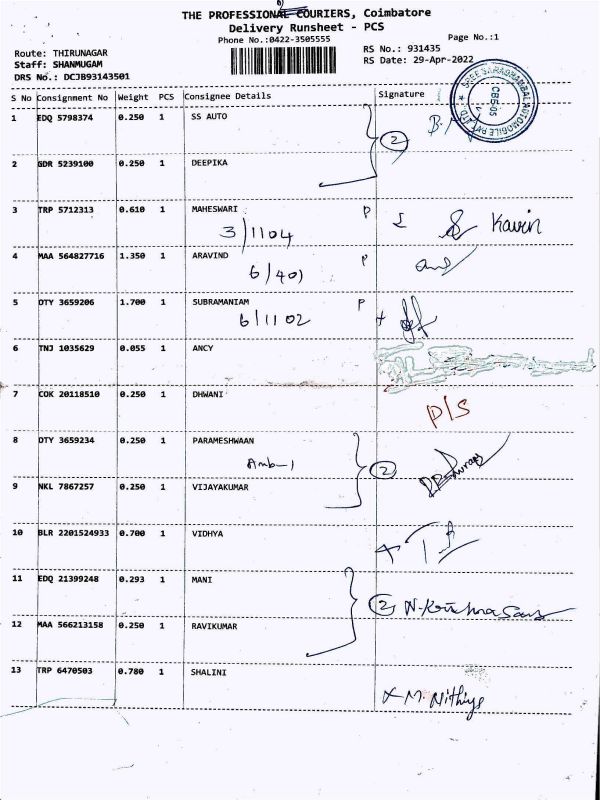 THE PROFESSIONAL COURIERS, Coimbatore
Delivery Runsheet - PCS
Phone No.:0422-3505555
Page No.:1
Route: THIRUNAGAR
RS No.: 931435
Staff: SHANMUGAM
RS Date: 29-Apr-2022
DRS No.: DCJB93143501
S No Consignment No Weight PCS Consignee Details Signature
1 EDQ 5798374 0.250 1 SS AUTO
2
2 GDR 5239100 0.250 1 DEEPIKA
3 TRP 5712313 0.610 1 MAHESWARI P
3/1104 Kavin
4 MAA 564827716 1.350 1 ARAVIND P
6/401
5 DTY 3659206 1.700 1 SUBRAMANIAM P
6/1102
6 TNJ 1035629 0.055 1 ANCY
7 COK 20118510 0.250 1 DHWANI
P/S
8 DTY 3659234 0.250 1 PARAMESHWAAN
Amb-1 2
9 NKL 7867257 0.250 1 VIJAYAKUMAR
10 BLR 2201524933 0.700 1 VIDHYA
11 EDQ 21399248 0.293 1 MANI
2
12 MAA 566213158 0.250 1 RAVIKUMAR
13 TRP 6470503 0.780 1 SHALINI
M. Nithiya